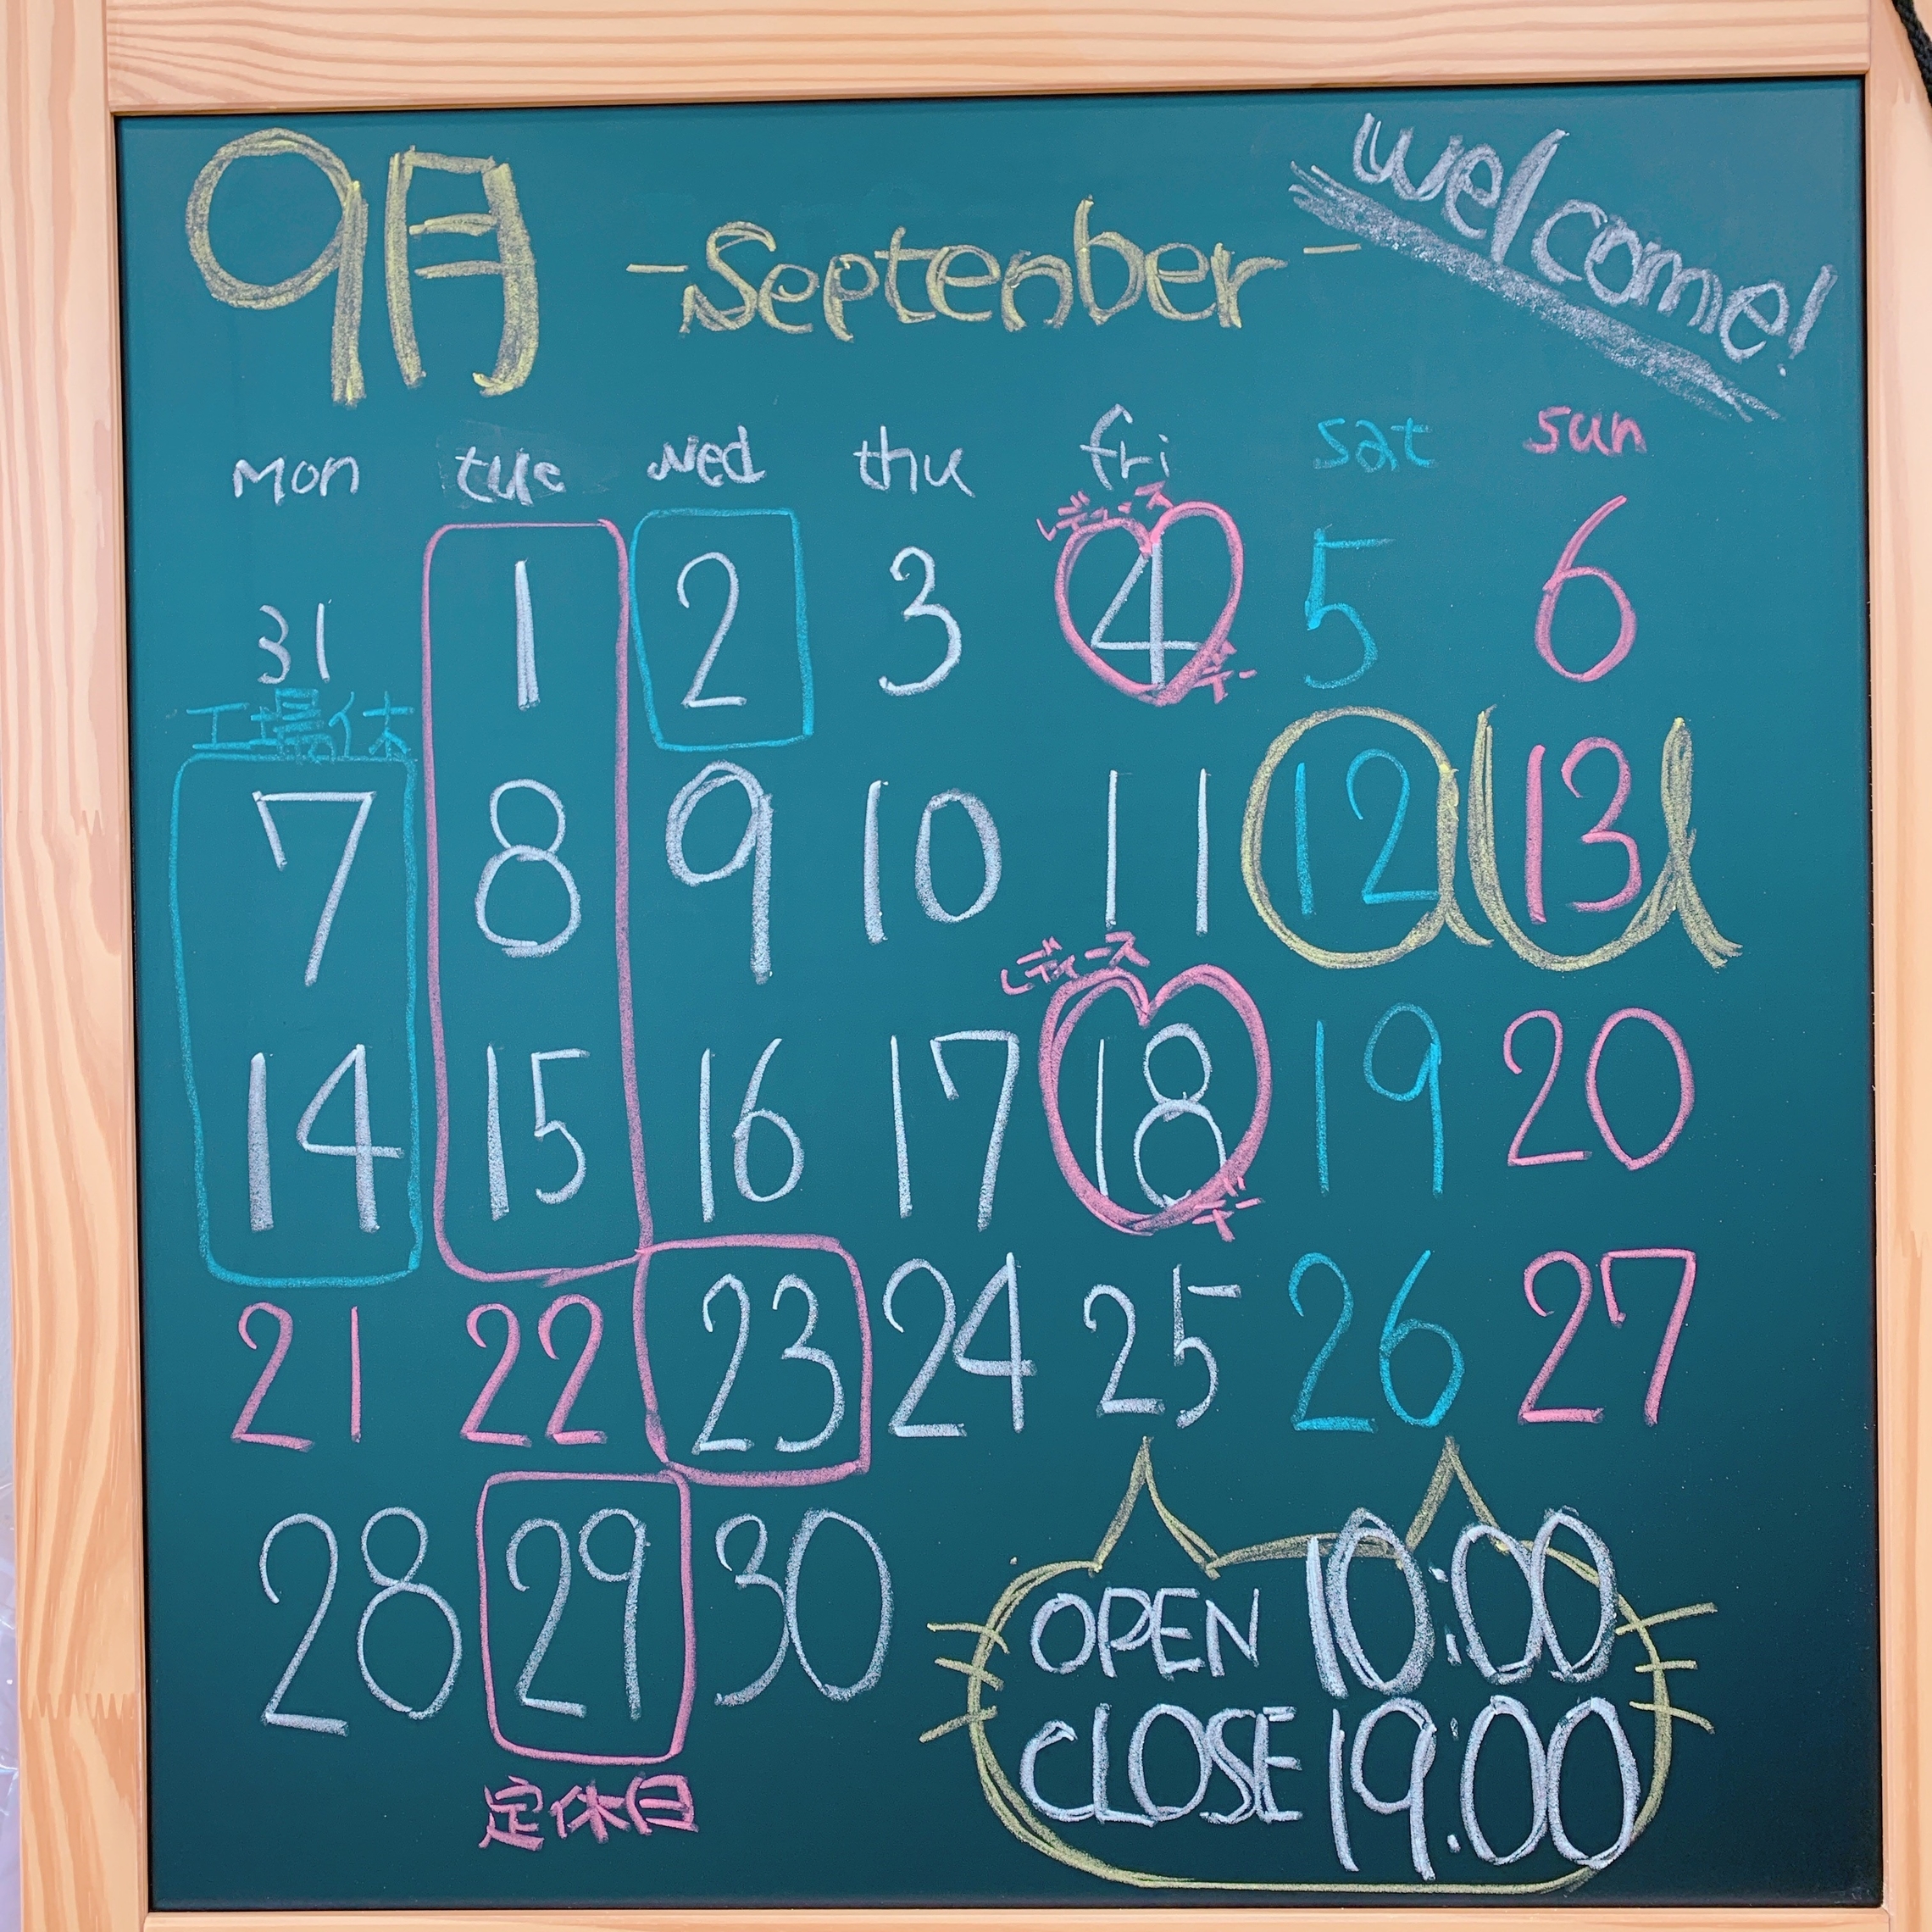 9月 -Septenber-
welcome!
Mon tue wed thu fri sat sun
レディース
31 1 2 3 4 5 6
デー
工場休
7 8 9 10 11 12 13
レディース
14 15 16 17 18 19 20
デー
21 22 23 24 25 26 27
28 29 30
OPEN 10:00
CLOSE 19:00
定休日